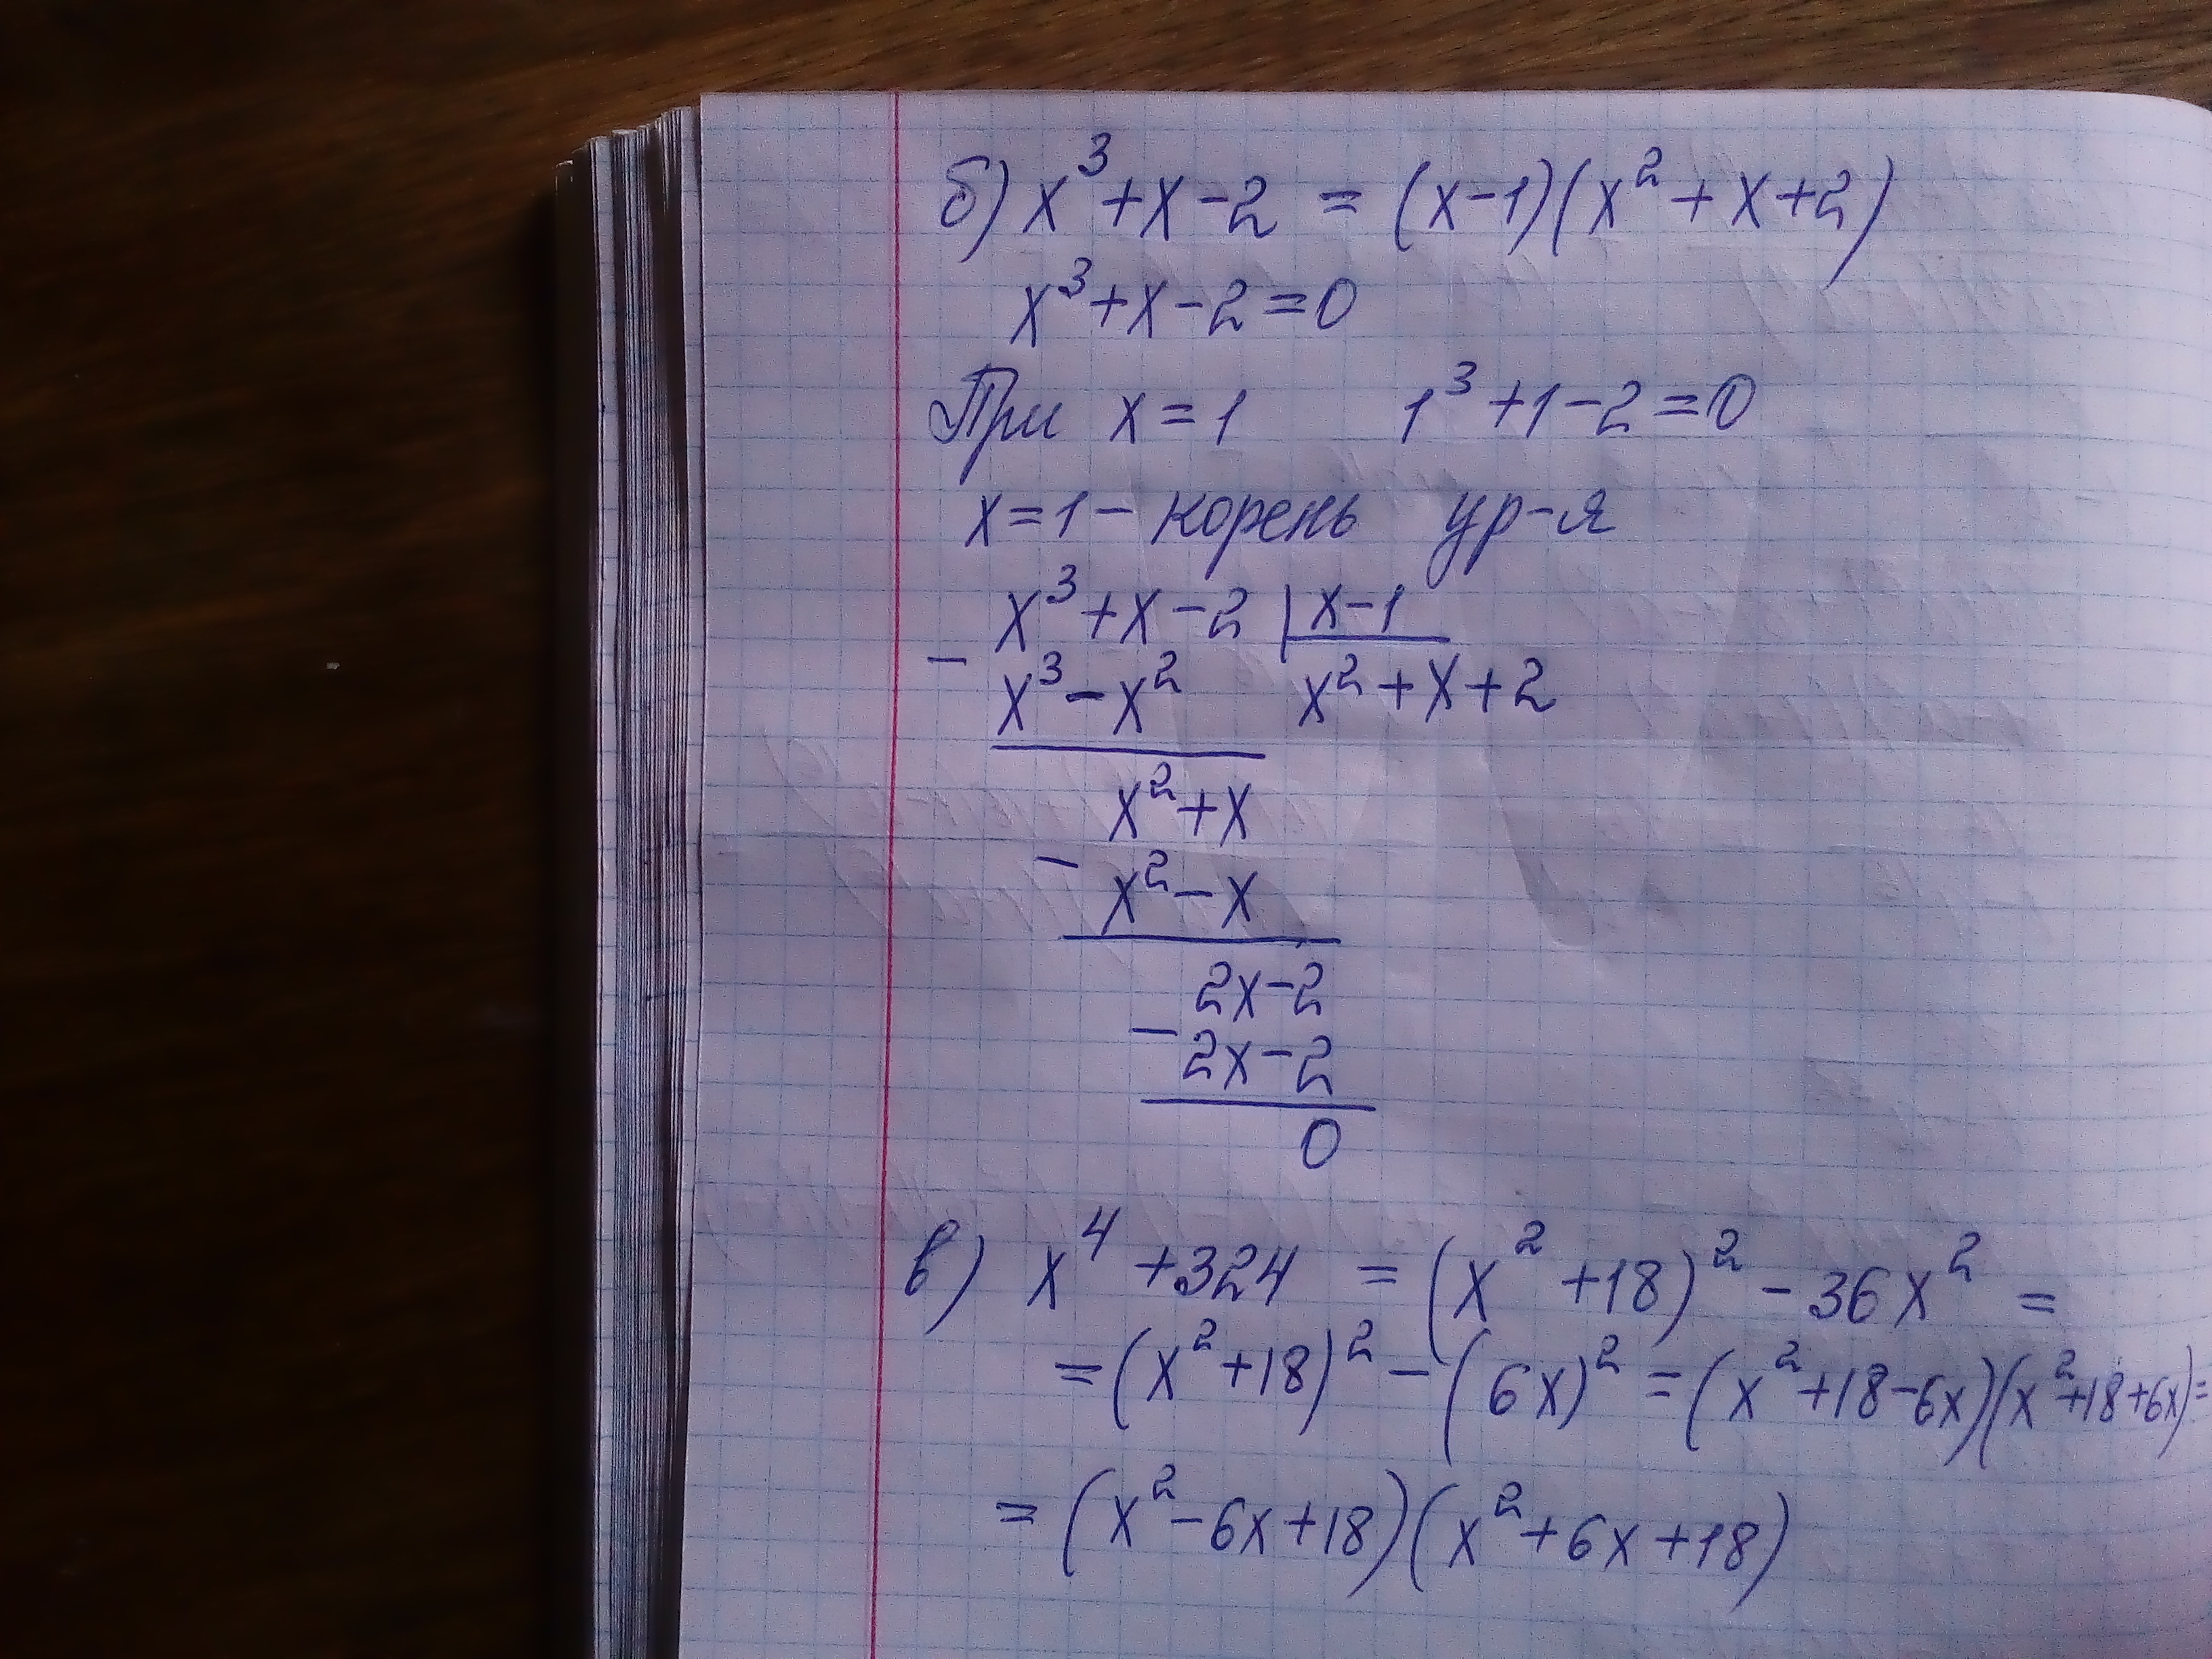 б) x³+x-2 = (x-1)(x²+x+2)
x³+x-2=0
При x=1 1³+1-2=0
x=1- корень ур-я
x³+x-2 |x-1
- x³-x² x²+x+2
x²+x
- x²-x
2x-2
- 2x-2
0
в) x⁴+324 = (x²+18)²-36x² =
=(x²+18)²-(6x)²=(x²+18-6x)(x²+18+6x)=
=(x²-6x+18)(x²+6x+18)